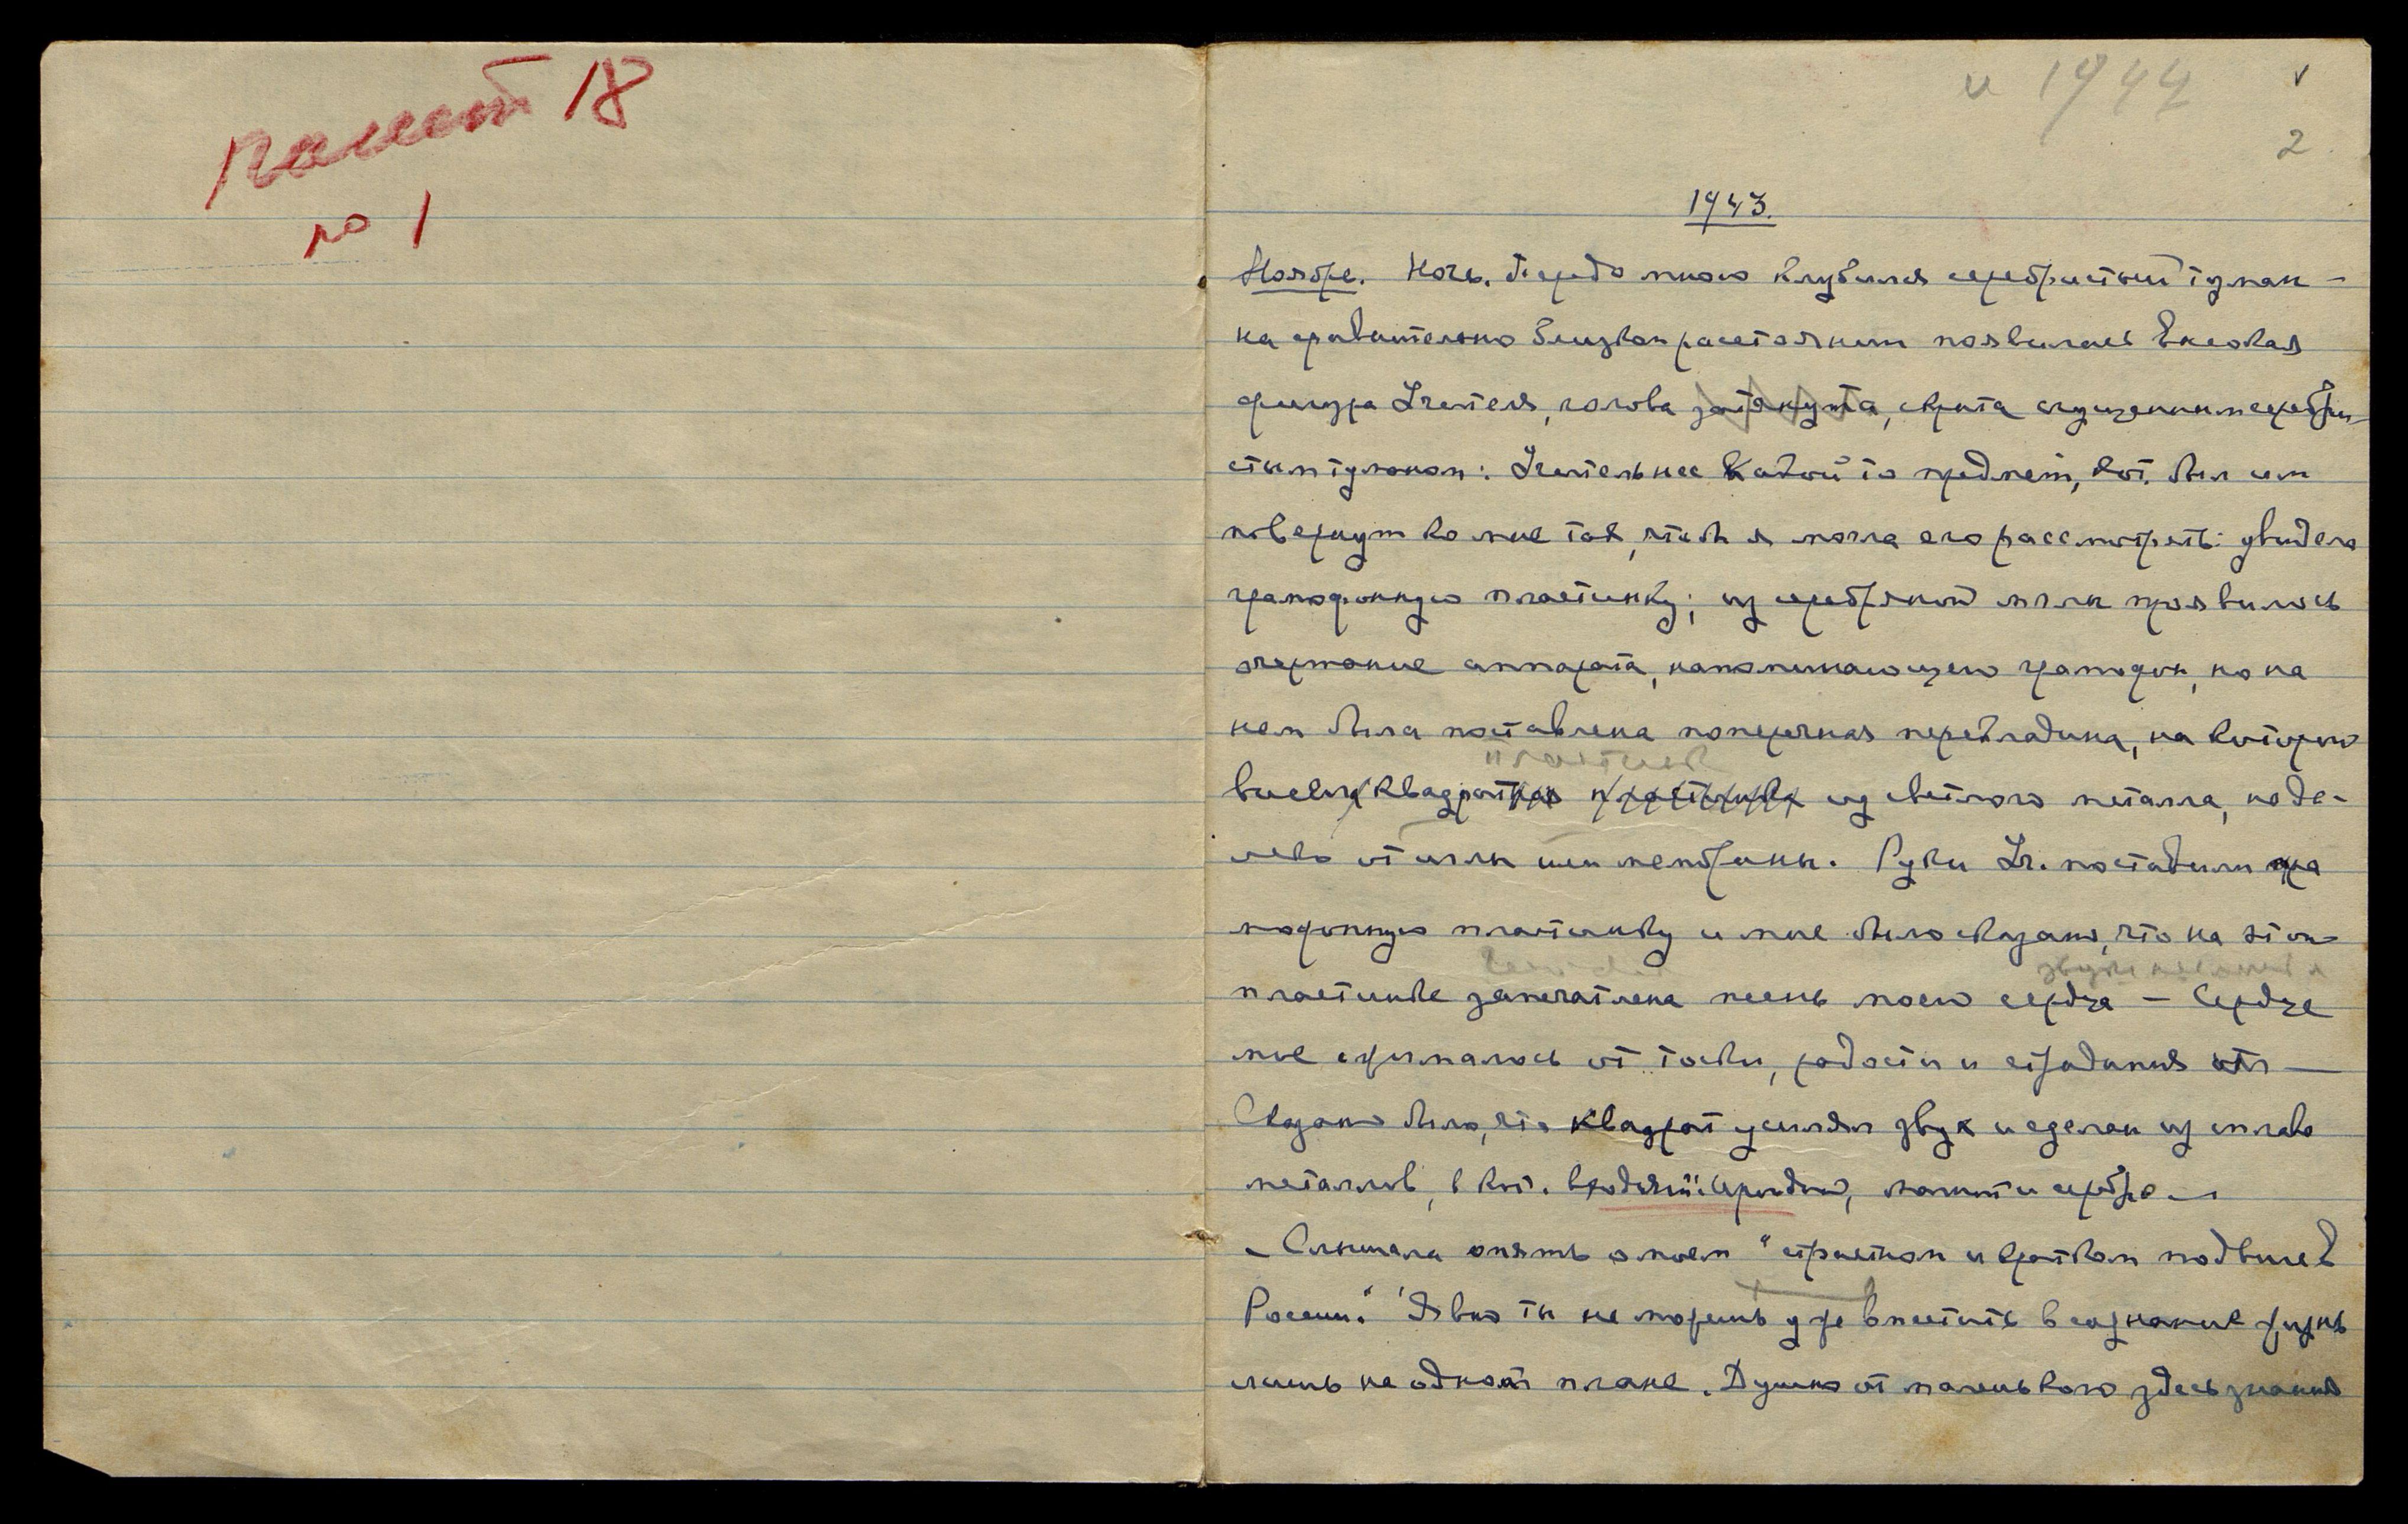 пакет 18
№ 1
и 1944
2
1943.
Ноябре. Ночь. Передо мною клубился серебристый туман –
на сравнительно близком расстоянии появилась высокая
фигура Учителя, голова затянута, скрыта сгущенным серебри-
стым туманом. Учитель нес какой то предмет, кот. был им
повернут ко мне так, чтобы я могла его рассмотреть: увидела
грамофонную пластинку; из серебряной мглы проявилось
очертание аппарата, напоминающего грамофон, но на
нем была поставлена поперечная перекладина, на которой
пластинка
висела квадратная пластинка из светлого металла, неда-
леко от иглы или мембраны. Руки Уч. поставили гра
мофонную пластинку и мне было сказано, что на этой
звучи
пластинке запечатлена песнь моего сердца – Сердце
мое сжималось от тоски, радости и страдания от –
Сказано было, что квадрат усилял звук и сделан из сплава
металлов, в кот. входят: иридий, магнит и серебро –
– Слышала опять о моем "страстном и кратком подвиге в
России". Явно ты не можешь уже вместить в сознание жизнь
лишь на одном плане. Душно от маленького здесь знания